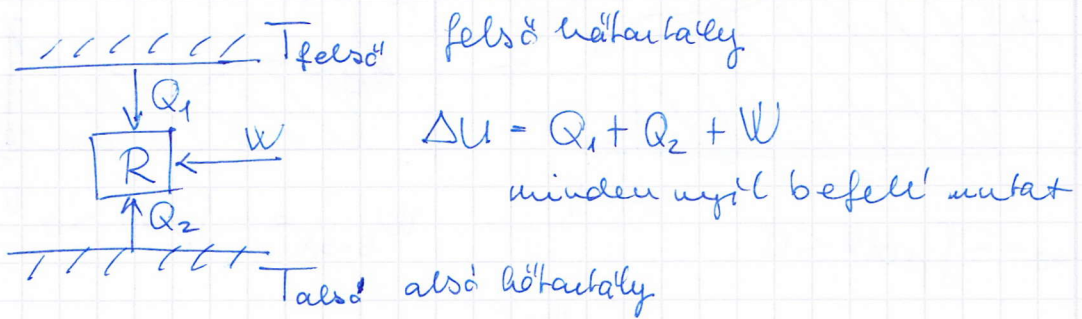 T_felső felső hőtartály
Q₁
ΔU = Q₁ + Q₂ + W
W
R
minden nyíl befelé mutat
Q₂
T_alsó alsó hőtartály